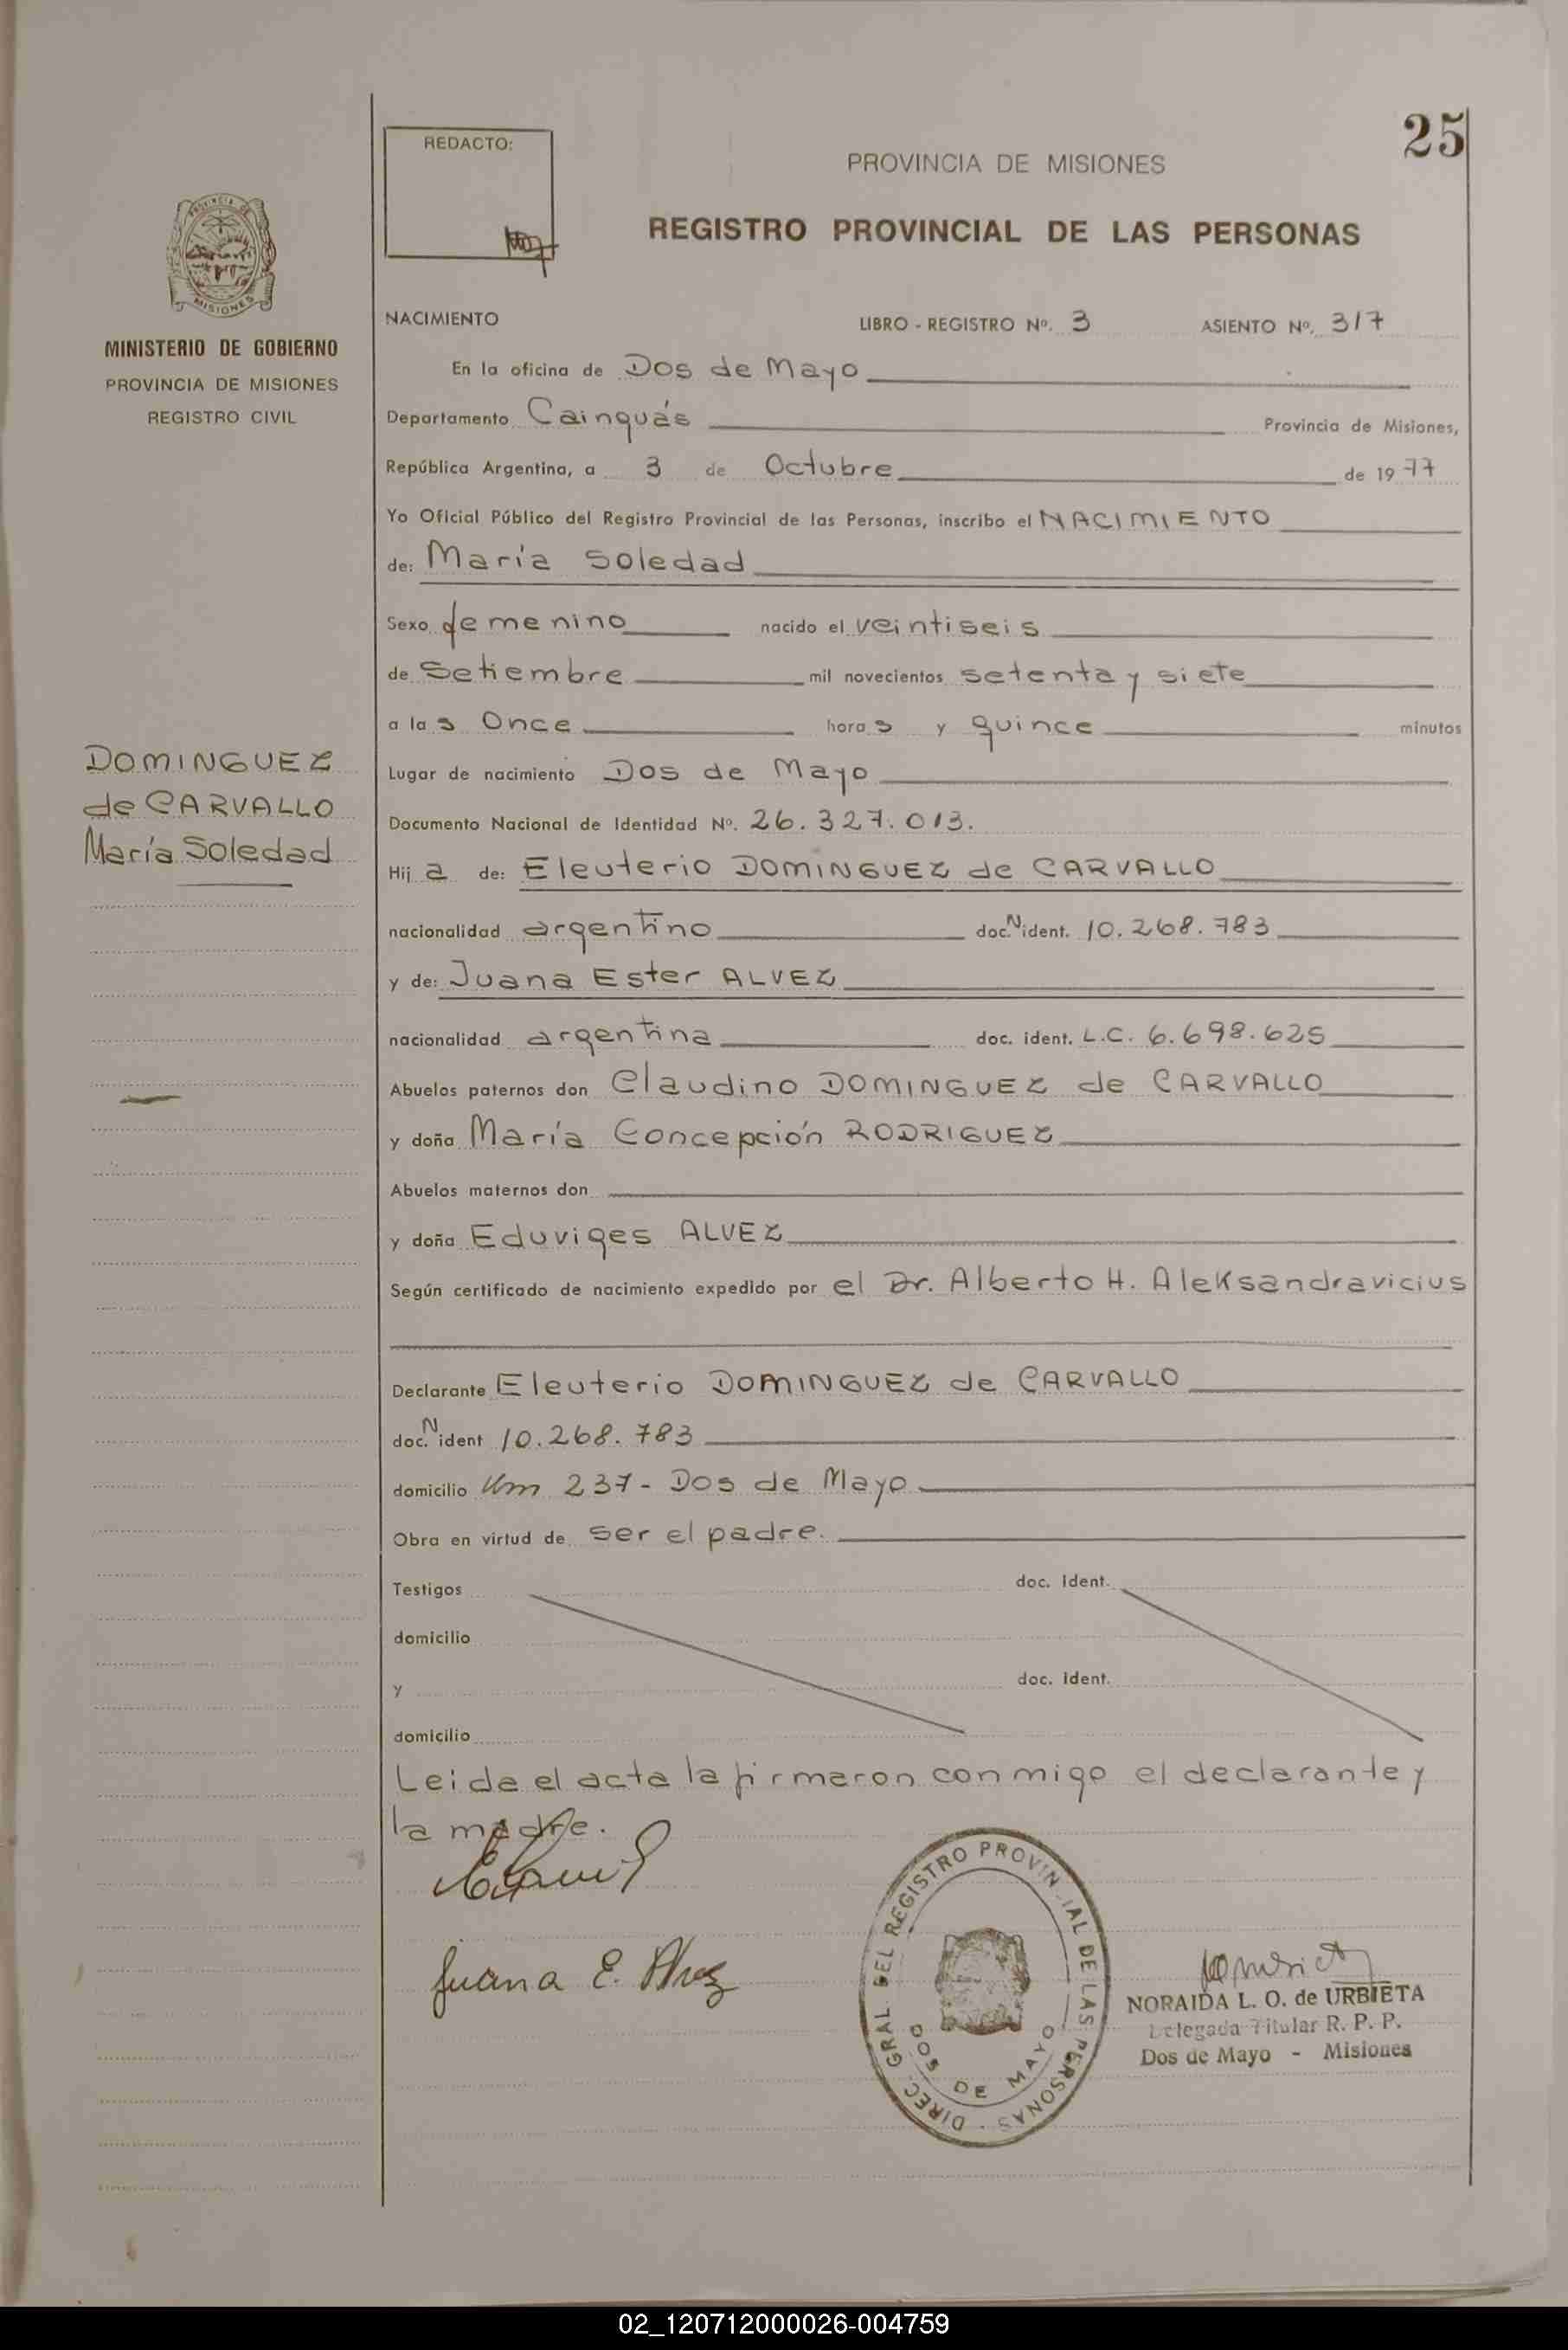 25
REDACTO:
PROVINCIA DE MISIONES
REGISTRO PROVINCIAL DE LAS PERSONAS
PROVINCIA DE
MISIONES
MINISTERIO DE GOBIERNO
PROVINCIA DE MISIONES
REGISTRO CIVIL
DOMINGUEZ
de CARVALLO
María Soledad
NACIMIENTO LIBRO - REGISTRO Nº. 3 ASIENTO Nº. 317
En la oficina de Dos de Mayo
Departamento Cainguás Provincia de Misiones,
República Argentina, a 3 de Octubre de 1977
Yo Oficial Público del Registro Provincial de las Personas, inscribo el NACIMIENTO
de: María Soledad
Sexo femenino nacido el veintiseis
de Setiembre mil novecientos setenta y siete
a las Once horas y quince minutos
Lugar de nacimiento Dos de Mayo
Documento Nacional de Identidad Nº. 26.327.013.
Hija de: Eleuterio DOMINGUEZ de CARVALLO
nacionalidad argentino doc. N ident. 10.268.783
y de: Juana Ester ALVEZ
nacionalidad argentina doc. ident. L.C. 6.698.625
Abuelos paternos don Claudino DOMINGUEZ de CARVALLO
y doña María Concepción RODRIGUEZ
Abuelos maternos don
y doña Eduviges ALVEZ
Según certificado de nacimiento expedido por el Dr. Alberto H. Aleksandravicius
Declarante Eleuterio DOMINGUEZ de CARVALLO
doc. N ident 10.268.783
domicilio Km 237 - Dos de Mayo
Obra en virtud de ser el padre.
Testigos doc. ident.
domicilio
y doc. ident.
domicilio
Leida el acta la firmaron conmigo el declarante y
la madre.
Juana E. Alvez
DIREC. GRAL. DEL REGISTRO PROVINCIAL DE LAS PERSONAS
DOS DE MAYO
NORAIDA L. O. de URBIETA
Delegada Titular R. P. P.
Dos de Mayo - Misiones
02_120712000026-004759